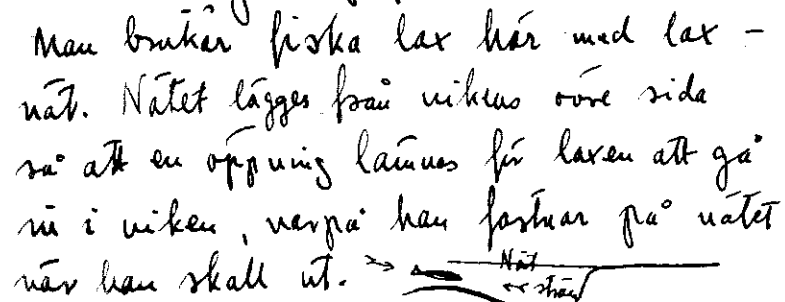 Man brukar fiska lax här med lax -
nät. Nätet lägges från vikens övre sida
så att en öppning lämnas för laxen att gå
in i viken, varpå han fastnar på nätet
när han skall ut.
Nät